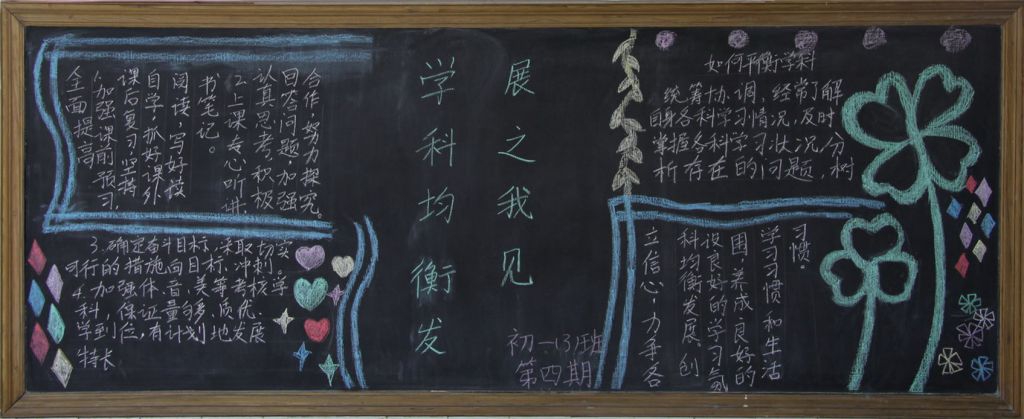 学科均衡发
展之我见
全面提高
1.加强课前预习,
课后复习,坚持
自学,抓好课外
阅读,写好读
书笔记。
2.上课专心听讲,
认真思考,积极
回答问题,加强
合作,努力探究。
3.确定奋斗目标,采取切实
可行的措施向目标冲刺。
4.加强体、音、美等考核,学
科,保证量多、质优
学到位,有计划地发展
特长
如何平衡学科
统筹协调,经常了解
自身各科学习情况,及时
掌握各科学习状况,分
析存在的问题,树
立信心,力争各
科均衡发展,创
设良好的学习氛
围,养成良好的
学习习惯和生活
习惯。
初一(3)班
第四期